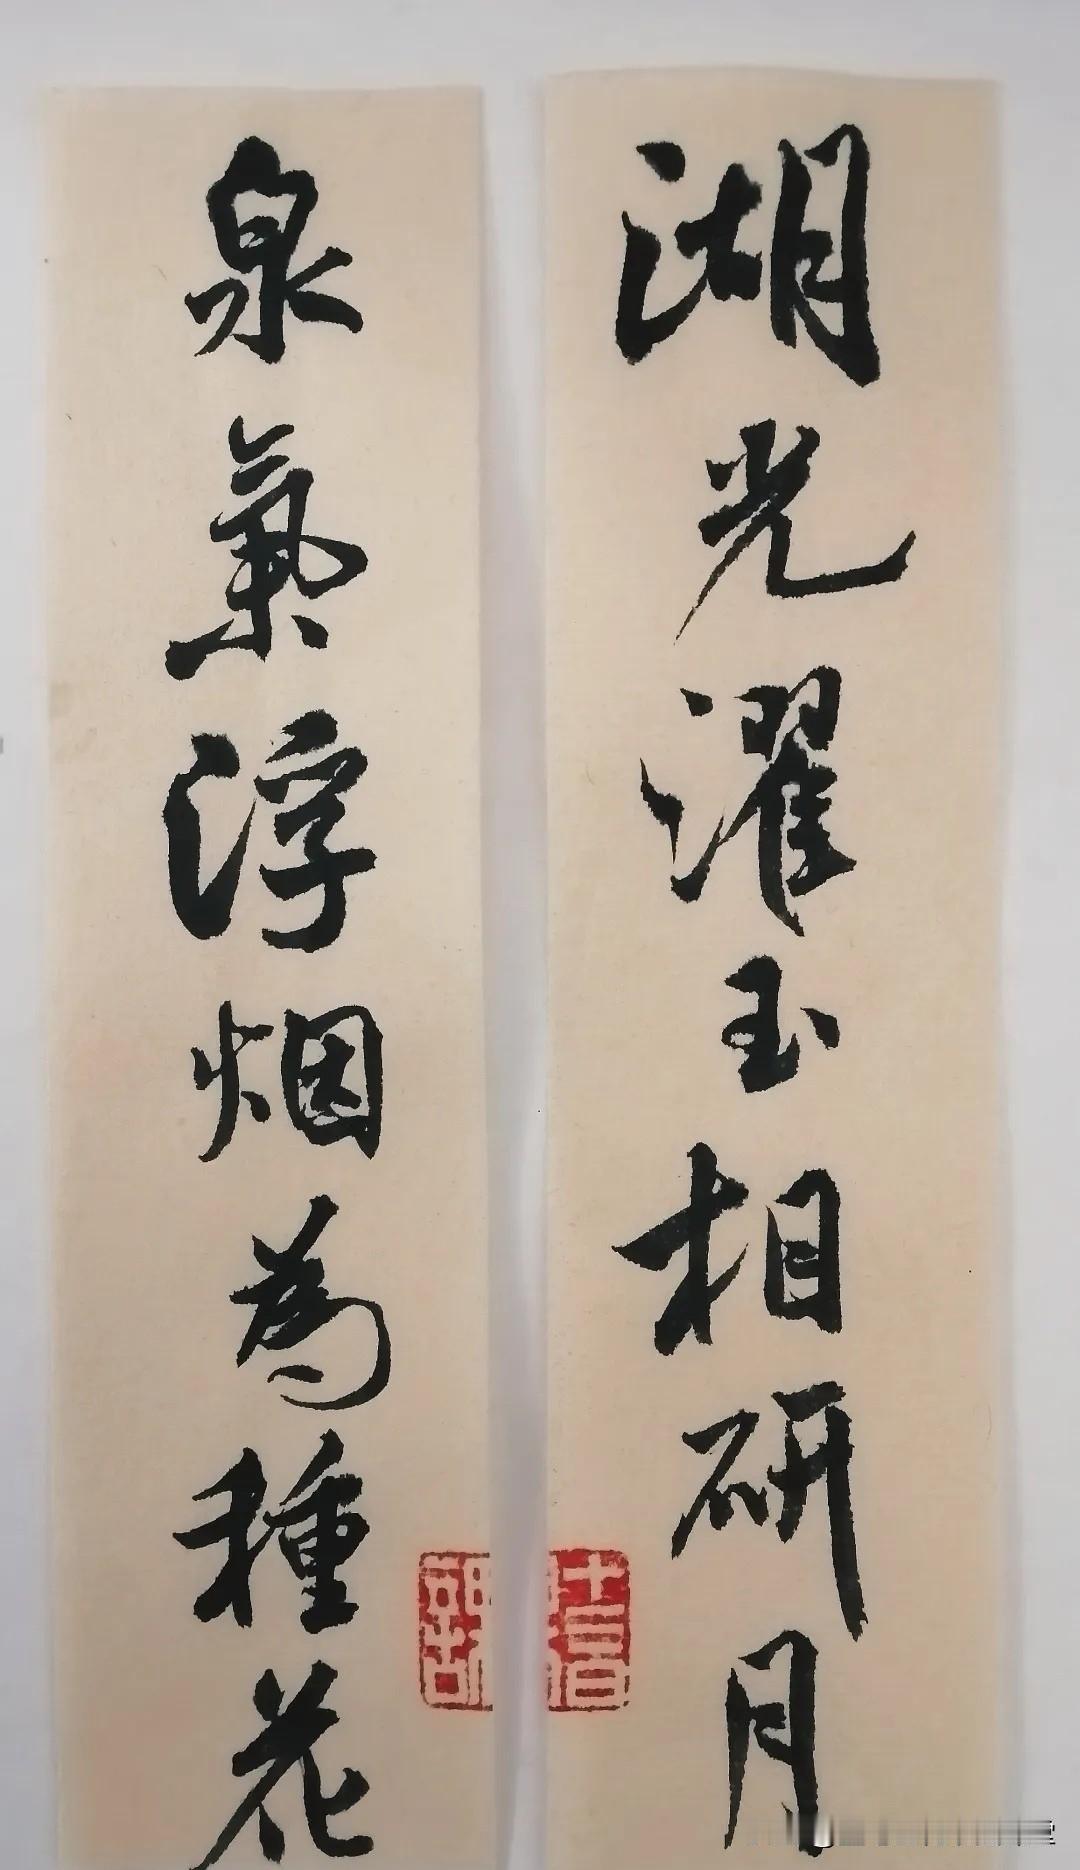 湖光濯玉相研月
泉氣浮烟為種花